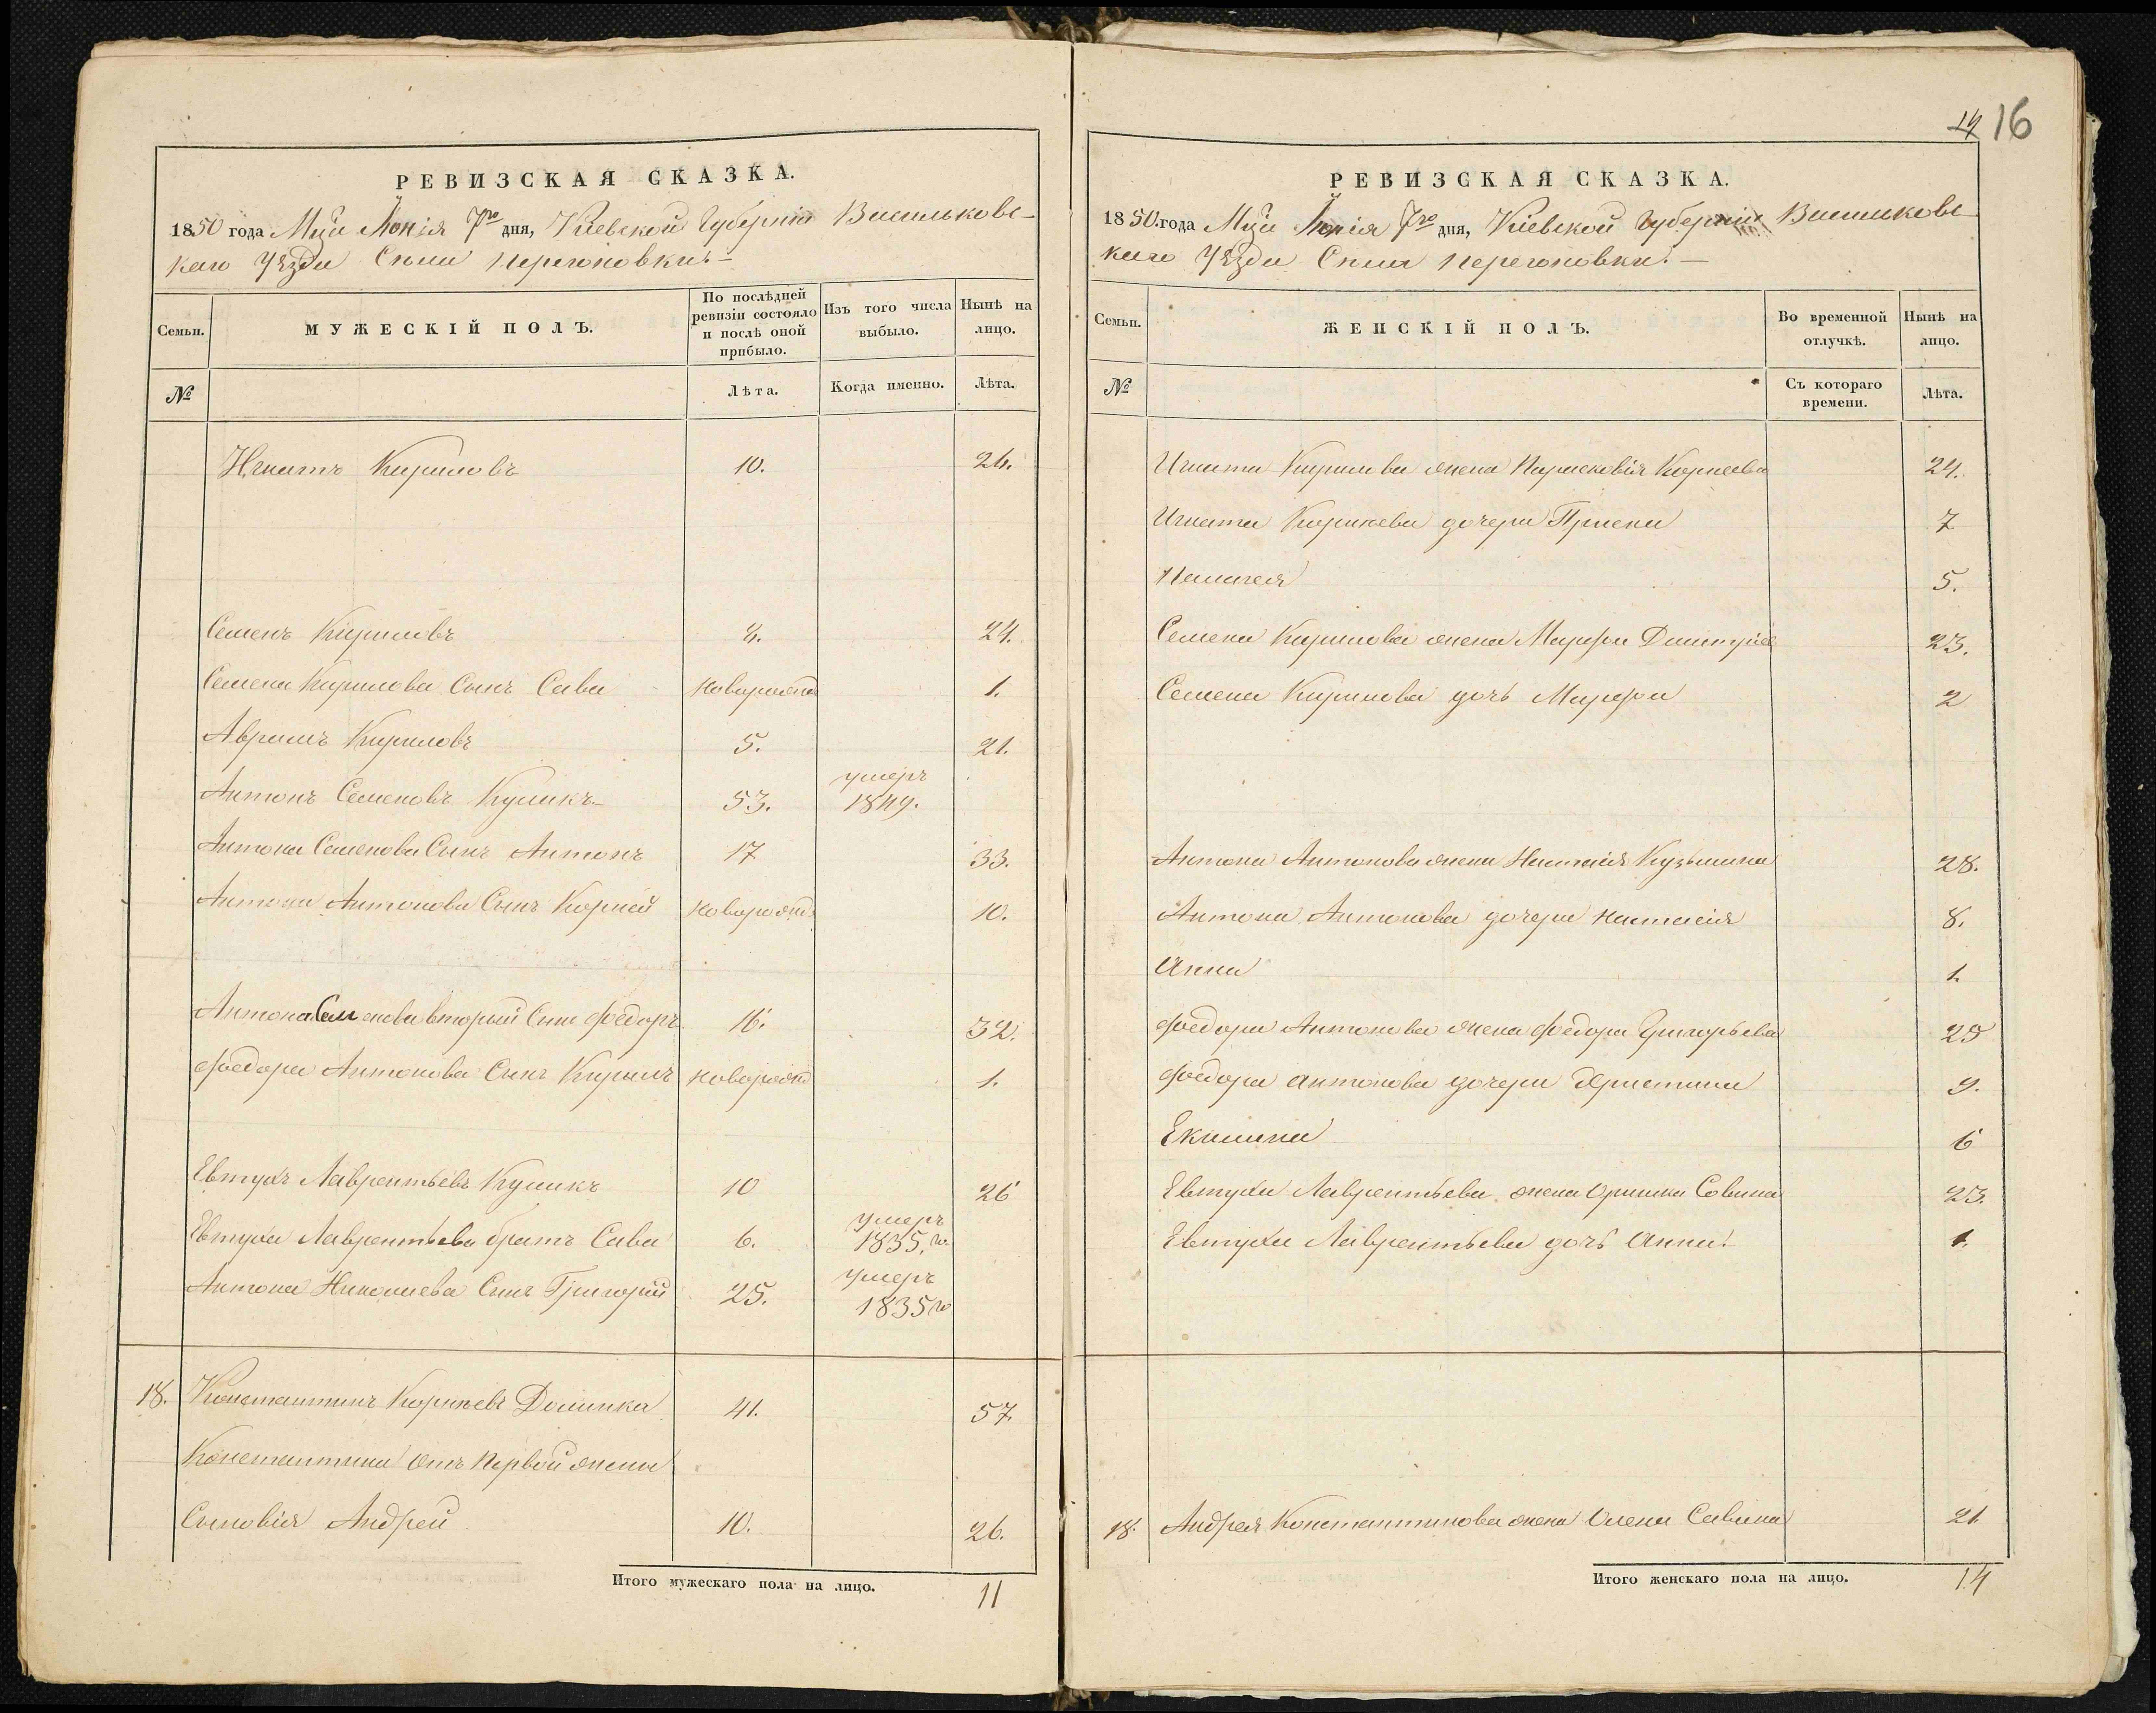 14 16
РЕВИЗСКАЯ СКАЗКА.
1850 года Мца Іюнія 7го дня, Кіевской Губерніи Васильковс-
каго Уезда Села Перегоновки.-
Семьи.
МУЖЕСКІЙ ПОЛЪ.
По послѣдней ревизіи состояло и послѣ оной прибыло.
Изъ того числа выбыло.
Нынѣ на лицо.
№
Лѣта.
Когда именно.
Лѣта.
Игнатъ Кириловъ 10. 26.
Семенъ Кириловъ 8. 24.
Семена Кирилова Сынъ Сава новорожд 1.
Аврамъ Кириловъ 5. 21.
Антонъ Семеновъ Куликъ 53. умеръ 1849.
Антона Семенова Сынъ Антонъ 17 33.
Антона Антонова Сынъ Корней новорожд 10.
Антона Семенова вторый Сынъ Федоръ 16. 32.
Федора Антонова Сынъ Кирилъ новорожд 1.
Евтухъ Лаврентьевъ Куликъ 10 26
Евтуха Лаврентьева братъ Сава 6. умеръ 1835 го
Антона Николаева Сынъ Григорій 25. умеръ 1835 го
18. Константинъ Корнеевъ Долинка 41. 57.
Константина отъ Первой жены
Сыновія Андрей 10. 26.
Итого мужескаго пола на лицо. 11
РЕВИЗСКАЯ СКАЗКА.
1850 года Мца Іюнія 7го дня, Кіевской Губерніи Васильковс
каго Уезда Села Перегоновки.-
Семьи.
ЖЕНСКІЙ ПОЛЪ.
Во временной отлучкѣ.
Нынѣ на лицо.
№
Съ котораго времени.
Лѣта.
Игната Кирилова жена Парасковія Корнеева 24.
Игната дочери Приска 7
Пелагея 5.
Семена Кирилова жена Марфа 23.
Семена Кирилова дочь Марфа 2
Антона Антонова жена Настасія Кузьмина 28.
Антона Антонова дочери Настасія 8.
Анна 1.
Федора Антонова жена Федора Григорьева 25
Федора Антонова дочери Христина 9.
Екилина 6
Евтуха Лаврентьева жена Оришка Совина 23.
Евтуха Лаврентьева дочь Анна. 1.
18. Андрея Константинова жена Олена Савина 21
Итого женскаго пола на лицо. 14